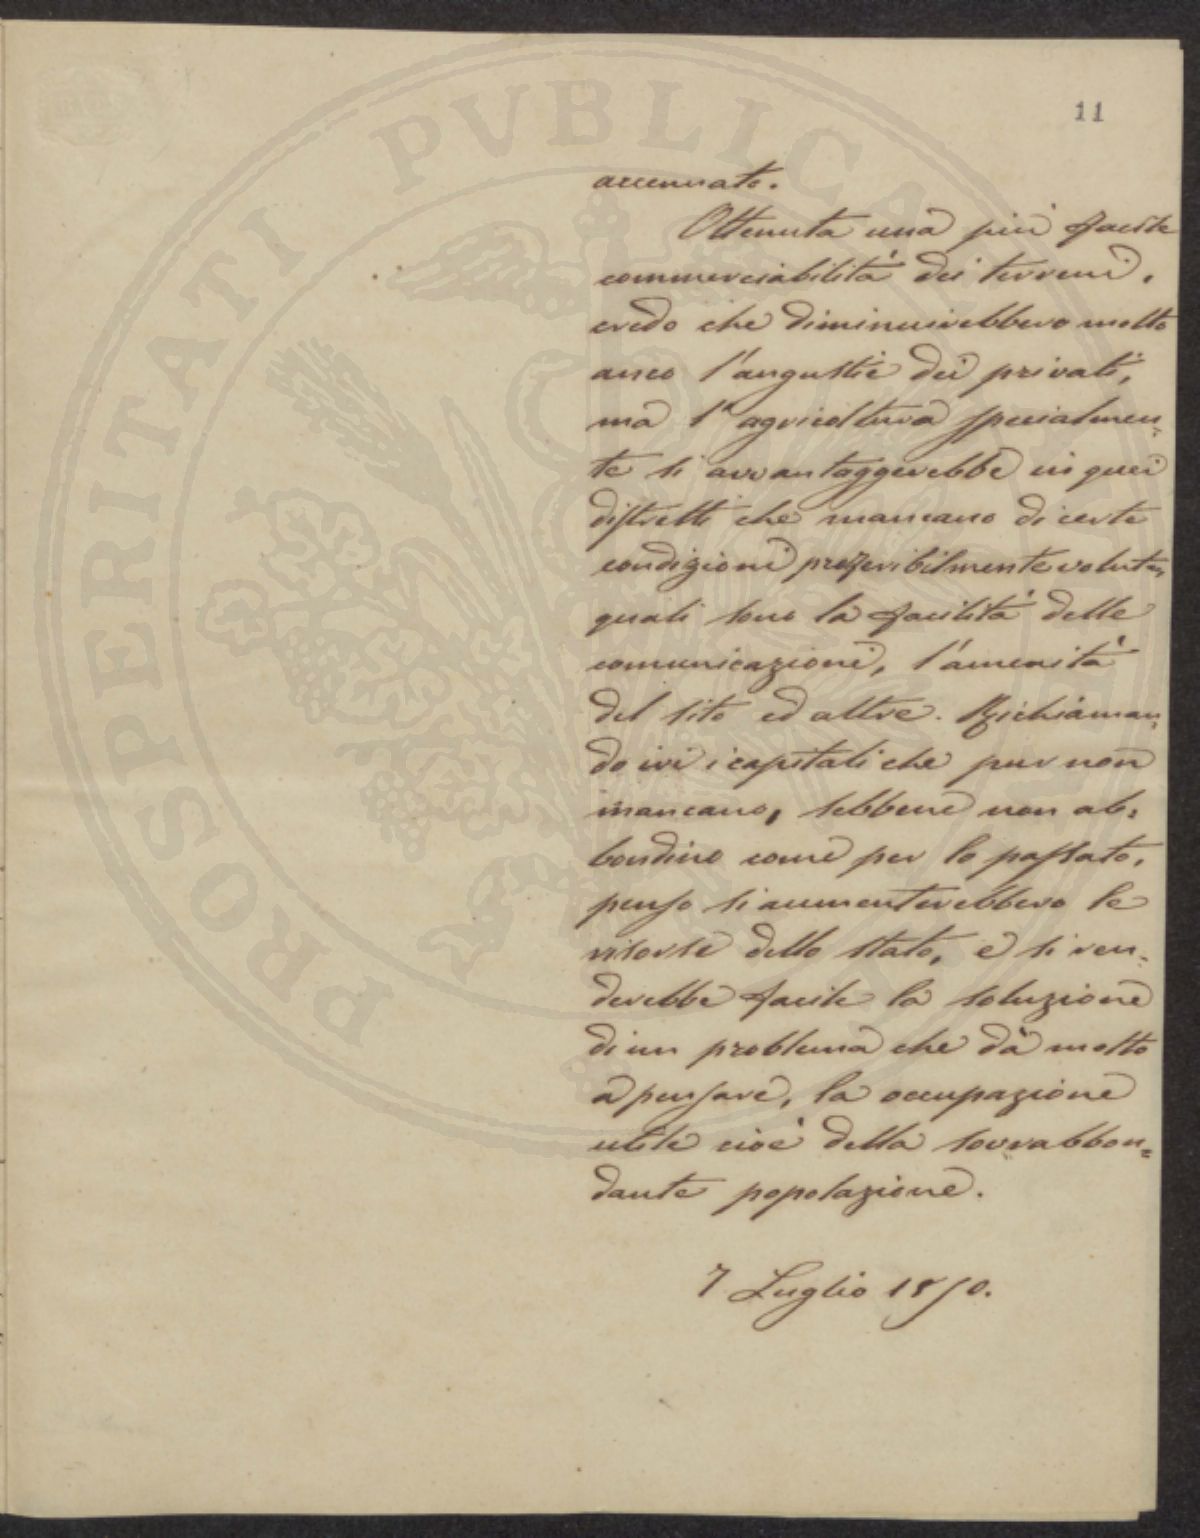 11
accennato.
Ottenuta una più facile
commerciabilità dei terreni,
credo che diminuirebbero molto
anco l'angustie dei privati,
ma l'agricoltura specialmen-
te si avvantaggerebbe in quei
distretti che mancano di certe
condizioni preferibilmente volute,
quali sono la facilità delle
comunicazioni, l'amenità
del sito ed altre. Richiaman-
do ivi i capitali che pur non
mancano, sebbene non ab-
bondino come per lo passato,
penso si aumenterebbero le
risorse dello stato, e si ren-
derebbe facile la soluzione
di un problema che dà molto
a pensare, la occupazione
utile cioè della sovrabbon=
dante popolazione.
7 Luglio 1850.
PROSPERITATI PVBLICAE